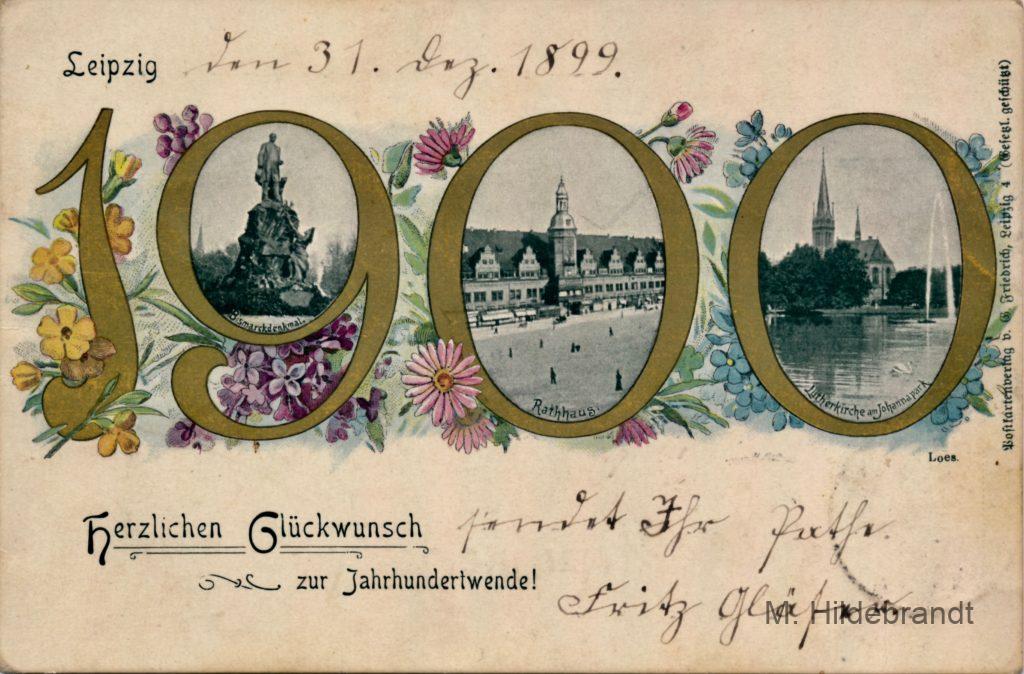 Leipzig den 31. Dez. 1899.
1900
Bismarckdenkmal.
Rathhaus.
Lutherkirche am Johannapark
Postkartenverlag v. G. Friedrich, Leipzig 4 (Gesetzl. geschützt)
Loes.
Herzlichen Glückwunsch sendet Ihr Pathe.
zur Jahrhundertwende!
Fritz Gläser.
M. Hildebrandt